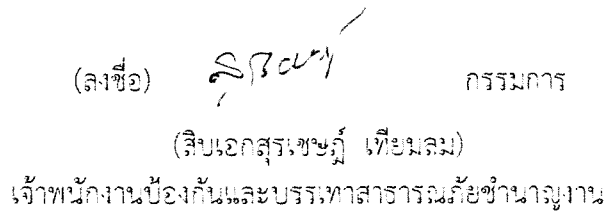 (ลงชื่อ) กรรมการ
(สิบเอกสุรเชษฎ์ เทียมลม)
เจ้าพนักงานป้องกันและบรรเทาสาธารณภัยชำนาญงาน